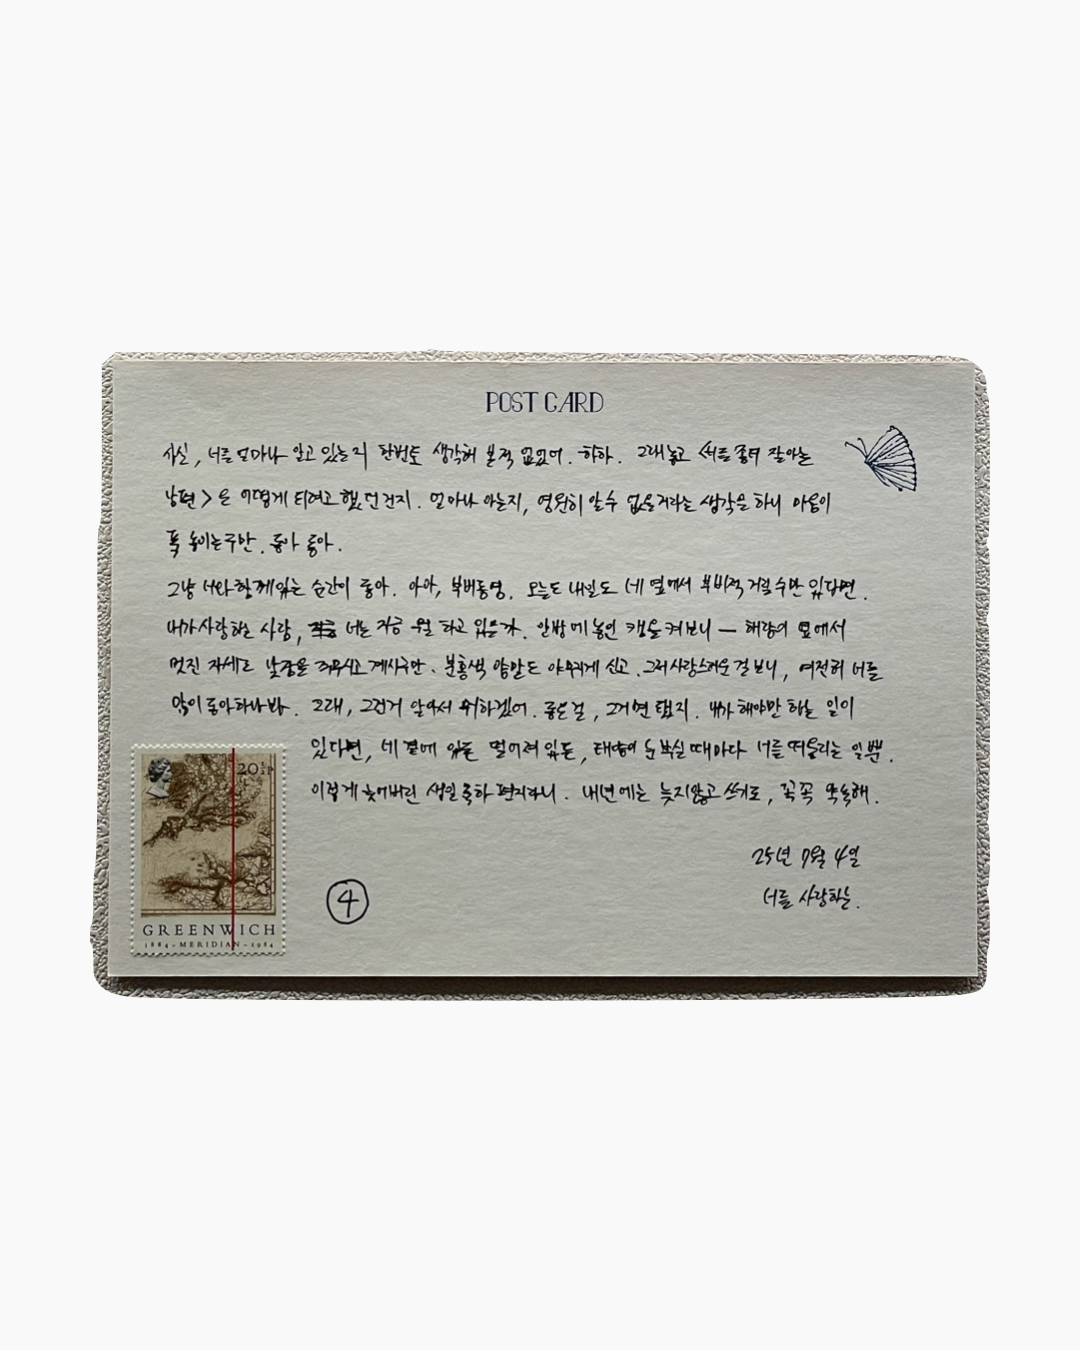 POST CARD
사실, 너를 얼마나 알고 있는지 한번도 생각해 본적 없었어. 하하. 그래놓고 <너를 좀더 잘아는
남편>은 어떻게 되려고 했던건지. 얼마나 아는지, 영원히 알수 없을거라는 생각을 하니 마음이
푹 놓이는구만. 좋아 좋아.
그냥 너와 함께있는 순간이 좋아. 아아, 부비동영. 오늘도 내일도 네 옆에서 부비적 거릴 수만 있다면.
내가 사랑하는 사람, 너는 지금 뭘 하고 있을까. 안방에 놓인 캠을 켜보니 — 해랑이 옆에서
멋진 자세로 낮잠을 주무시고 계시구만. 분홍색 양말도 야무지게 신고. 그 사랑스러운 걸 보니, 여전히 너를
많이 좋아하나봐. 그래, 그런거 알아서 뭐하겠어. 좋은걸, 그거면 됐지. 내가 해야만 하는 일이
있다면, 네 곁에 있든 멀어져 있든, 태양이 눈부실 때마다 너를 떠올리는 일뿐.
이렇게 늦어버린 생일축하 편지라니. 내년에는 늦지않고 쓰기로, 꼭꼭 약속해.
25년 7월 4일
너를 사랑하는.
20½P
GREENWICH
1884-MERIDIAN-1984
4